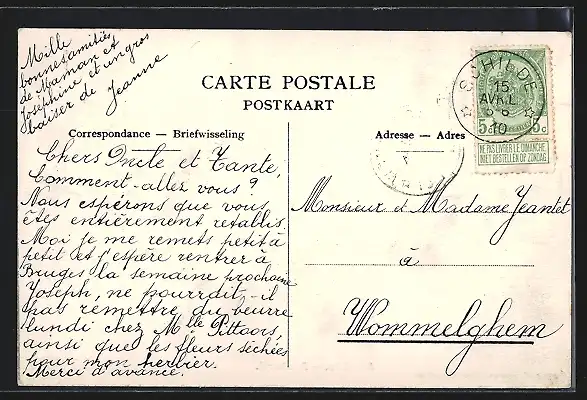 Mille
bonnes amitiés
de Maman et
Joséphine et un gros
baiser de Jeanne
CARTE POSTALE
POSTKAART
Correspondance — Briefwisseling
Adresse — Adres
Chers Oncle et Tante,
Comment allez vous?
Nous espérons que vous
êtes entièrement retablis.
Moi je me remets petit à
petit et j'espère rentrer à
Bruges la semaine prochaine
Joseph, ne pourrait-il
pas remettre du beurre
lundi chez Mlle Pittaors,
ainsi que les fleurs séchées
pour mon herbier.
Merci d'avance.
SCHILDE
15
AVRIL
10
5c 5c
NE PAS LIVRER LE DIMANCHE
NIET BESTELLEN OP ZONDAG
Monsieur et Madame Jeantet
à
Wommelghem